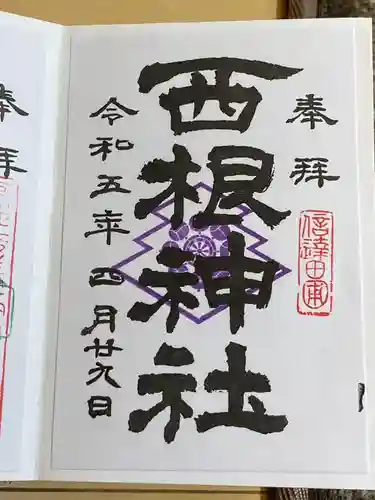 奉拝
信達田甫
西根神社
令和五年四月廿九日
奉拝